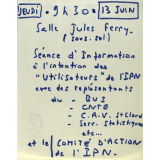 JEUDI . 9H30 . 13 JUIN
Salle Jules Ferry.
(sous. sol)
Séance d'Information
à l'intention des
"Utilisateurs" de l'IPN
avec des représentants
du - BUS
- CNTE
- C.A.V. St Cloud
- Serv. Statistiques
etc...
et le COMITÉ D'ACTION
de l'IPN.